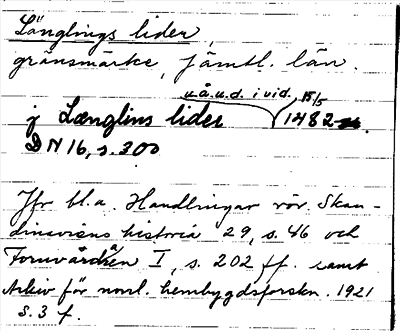 Länglings lider,
gränsmärke, jämtl. län.
u.å.u.d. i vid. 15/5
j Længlins lider 1482
DN 16, s. 300
Jfr bl.a. Handlingar rör. Skan-
dinaviens historia 29, s. 46 och
Fornvårdaren I, s. 202 ff. samt
Arkiv för norrl. hembygdsforskn. 1921
s. 3 f.